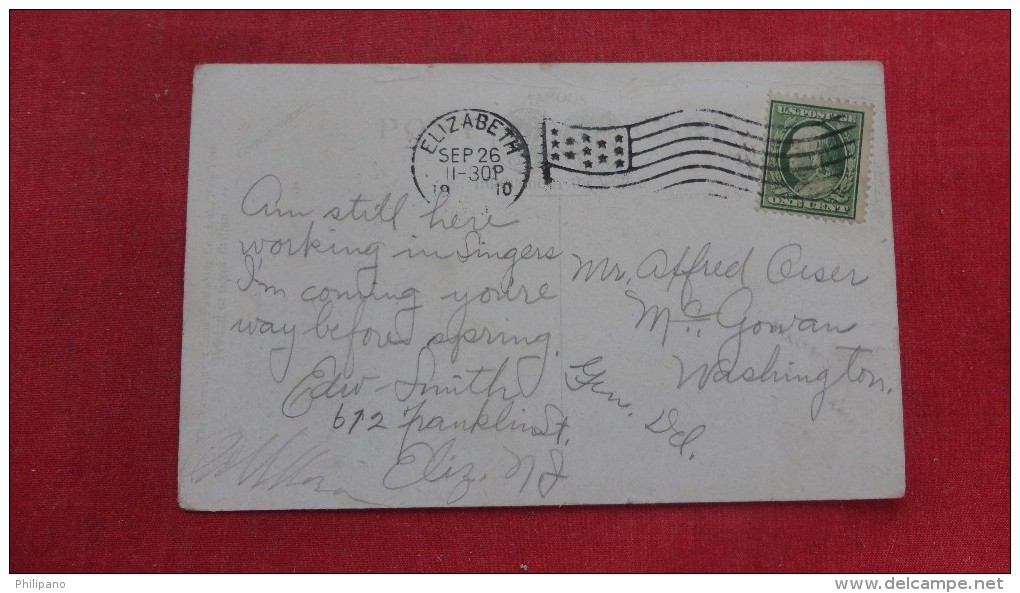 ELIZABETH
SEP 26
11-30P
19 10
U.S. POSTAGE
ONE CENT
Am still here
working in Singers
I'm coming you're
way before spring.
Edw- Smith
612 Franklin St.
Eliz. NJ
Mr. Alfred Oeser
Mc. Gowan
Washington.
Gen. Del.
Philipano
www.delcampe.net